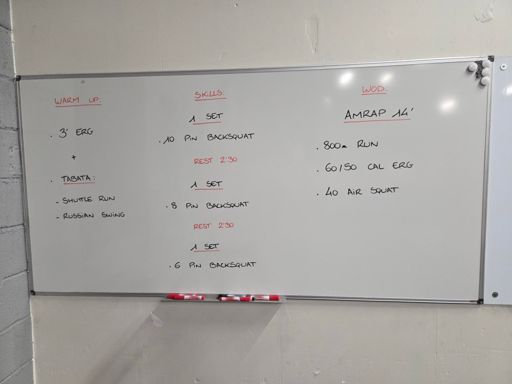 WARM UP:
. 3' ERG
+
. TABATA:
- SHUTTLE RUN
- RUSSIAN SWING
SKILLS:
1 SET
. 10 PIN BACKSQUAT
REST 2'30
1 SET
. 8 PIN BACKSQUAT
REST 2'30
1 SET
. 6 PIN BACKSQUAT
WOD:
AMRAP 14'
. 800m RUN
. 60/50 CAL ERG
. 40 AIR SQUAT